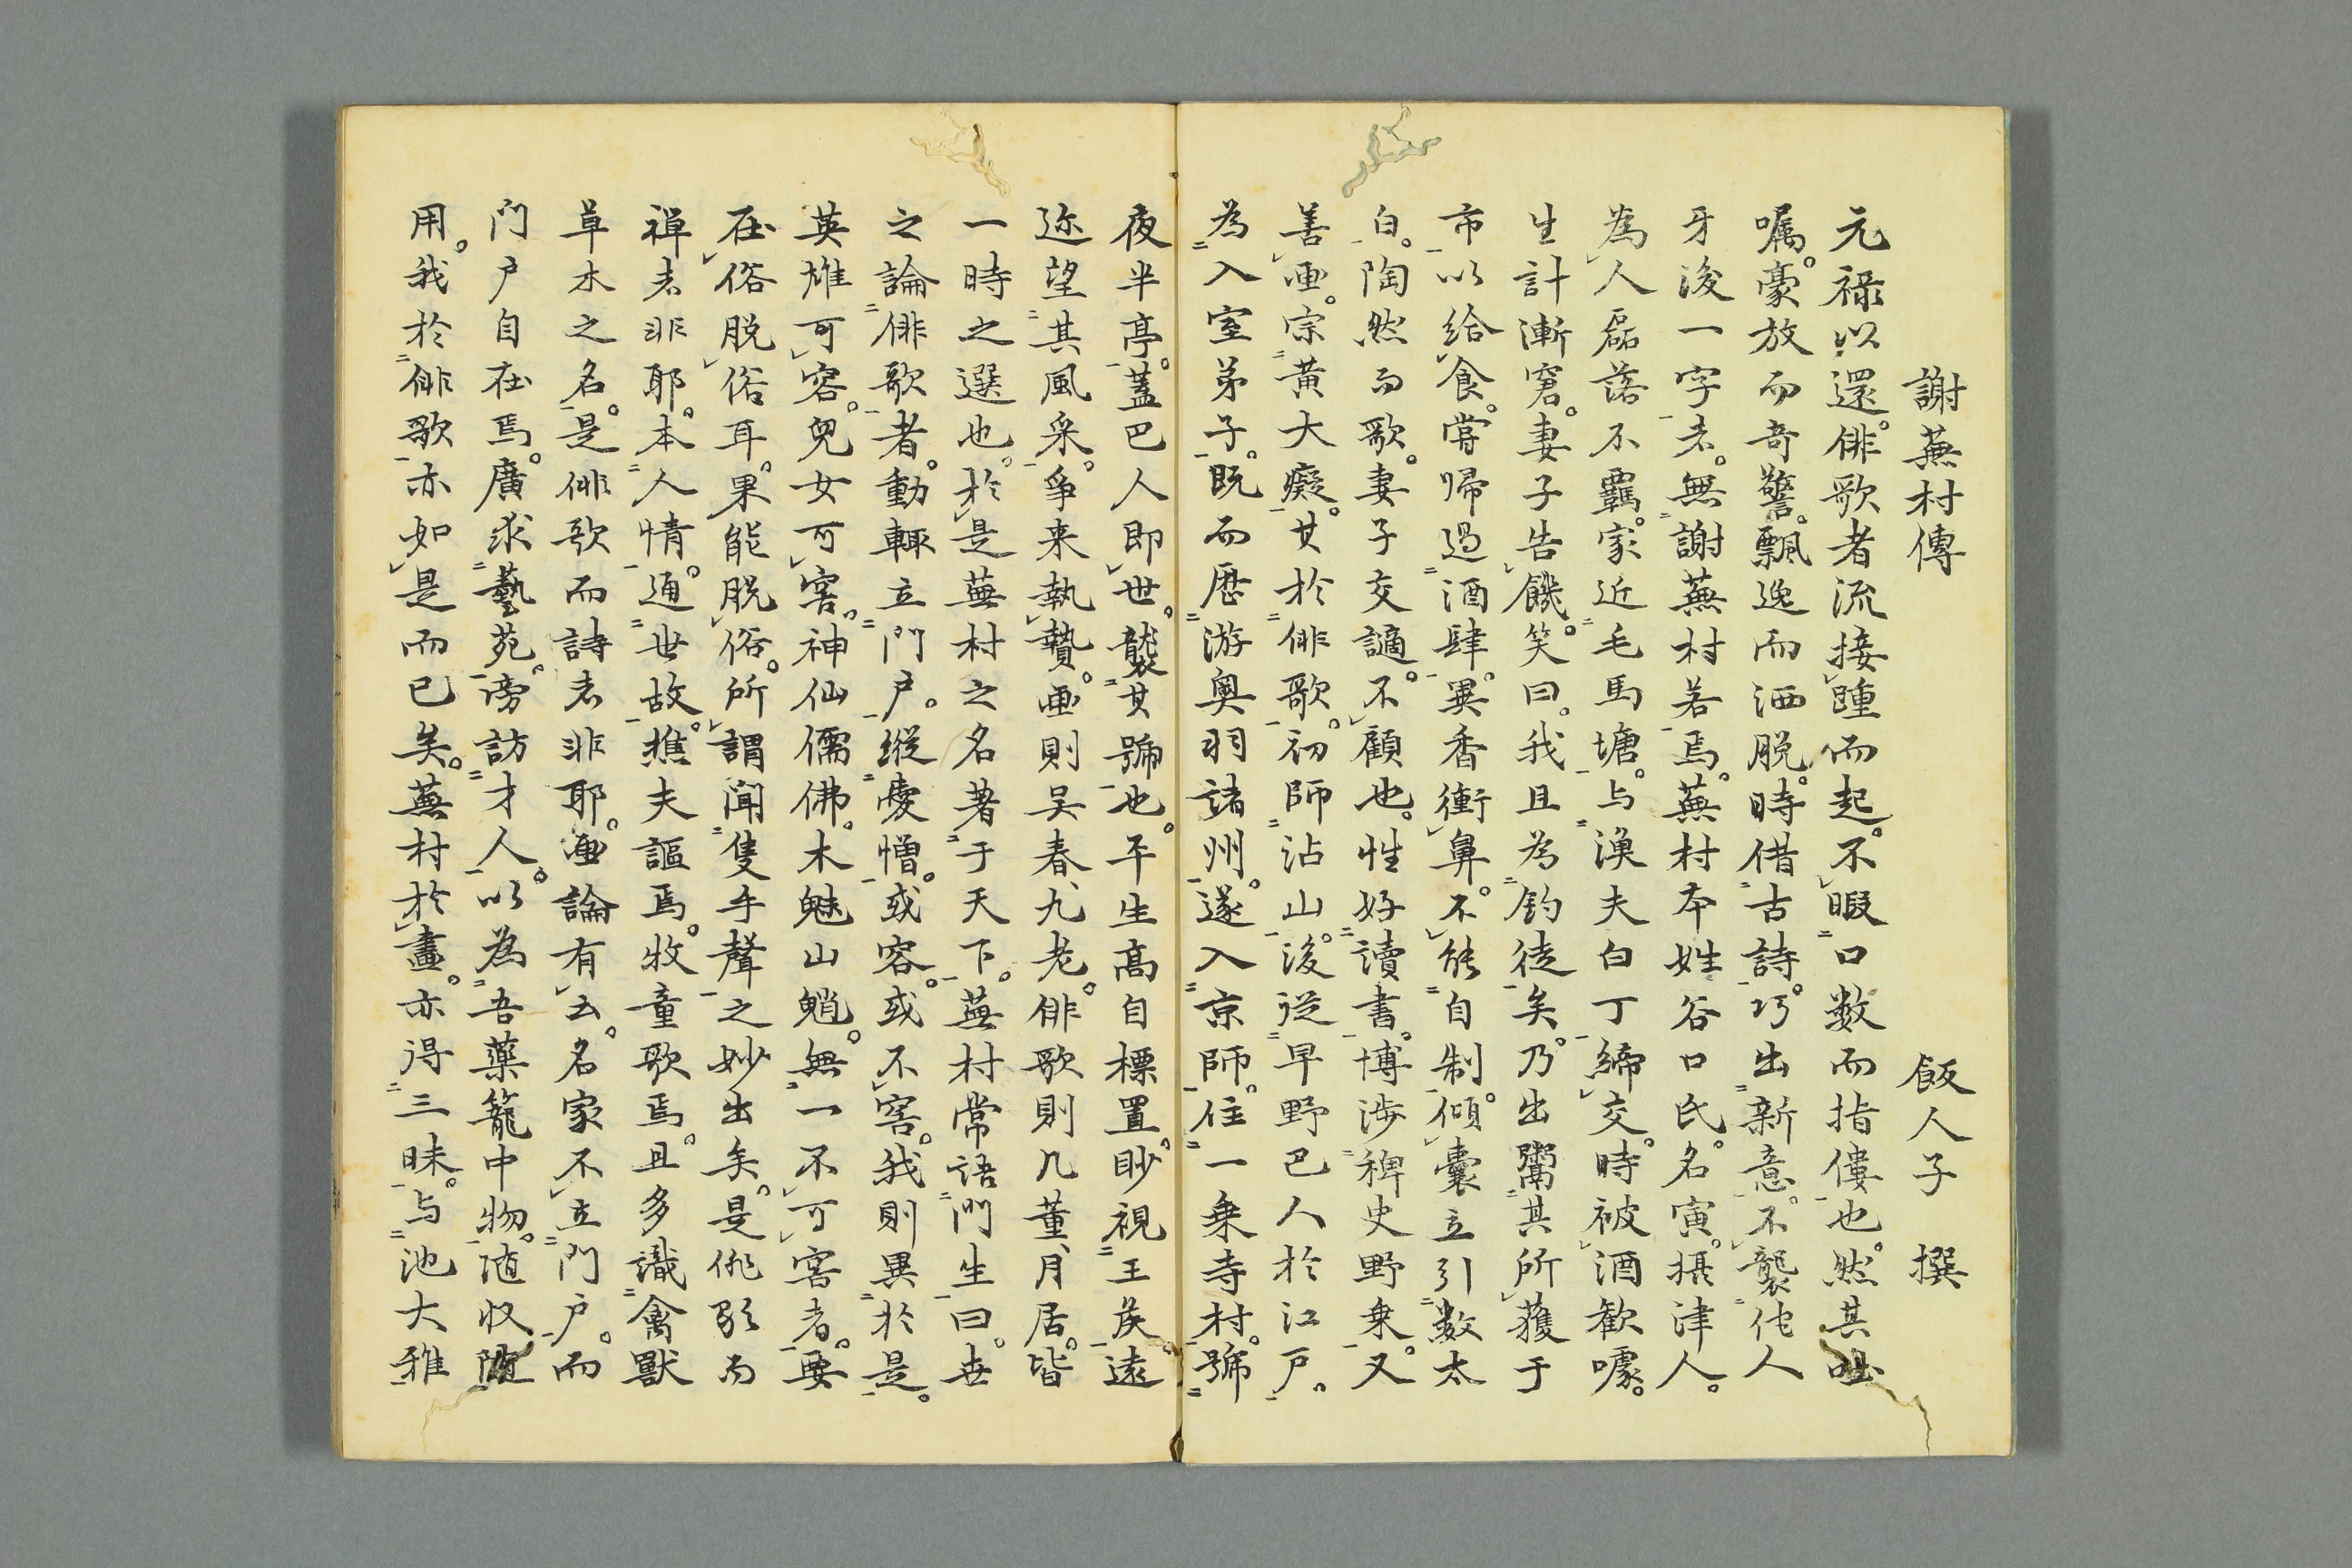 謝蕪村傳 飯人子 撰
元禄以還。俳歌者流接踵而起。不暇口数而指僂也。然其咄
嘱。豪放而奇警。飄逸而洒脱。時借古詩。巧出新意。不襲佗人
牙後一字者。無謝蕪村若焉。蕪村本姓谷口氏。名寅。摂津人。
為人磊落不羈。家近毛馬塘。与漁夫白丁締交。時被酒歓噱。
生計漸窘。妻子告饑。笑曰。我且為釣徒矣。乃出鬻其所獲于
市以給食。嘗帰過酒肆。異香衝鼻。不能自制。傾嚢立引数太
白。陶然而歌。妻子交謫。不顧也。性好讀書。博渉稗史野乗。又
善画。宗黄大癡。其於俳歌。初師沾山。後従早野巴人於江戸。
為入室弟子。既而歴游奥羽諸州。遂入京師。住一乗寺村。號
夜半亭。蓋巴人即世。襲其號也。平生高自標置。眇視王侯。遠
迩望其風采。争来執贄。画則呉春、九老。俳歌則几董、月居。皆
一時之選也。於是蕪村之名著于天下。蕪村常語門生曰。世
之論俳歌者。動輙立門戸。縦愛憎。或容。或不害。我則異於是。
英雄可容。兒女可害。神仙儒佛。木魅山魈。無一不可害者。要
在俗脱俗耳。果能脱俗。所謂聞隻手聲之妙出矣。是俳歌而
禅者非耶。本人情。通世故。樵夫謳焉。牧童歌焉。且多識禽獸
草木之名。是俳歌而詩者非耶。画論有云。名家不立門戸。而
門戸自在焉。廣求藝苑。旁訪才人。以為吾薬籠中物。随収随
用。我於俳歌亦如是而已矣。蕪村於畫。亦得三昧。与池大雅